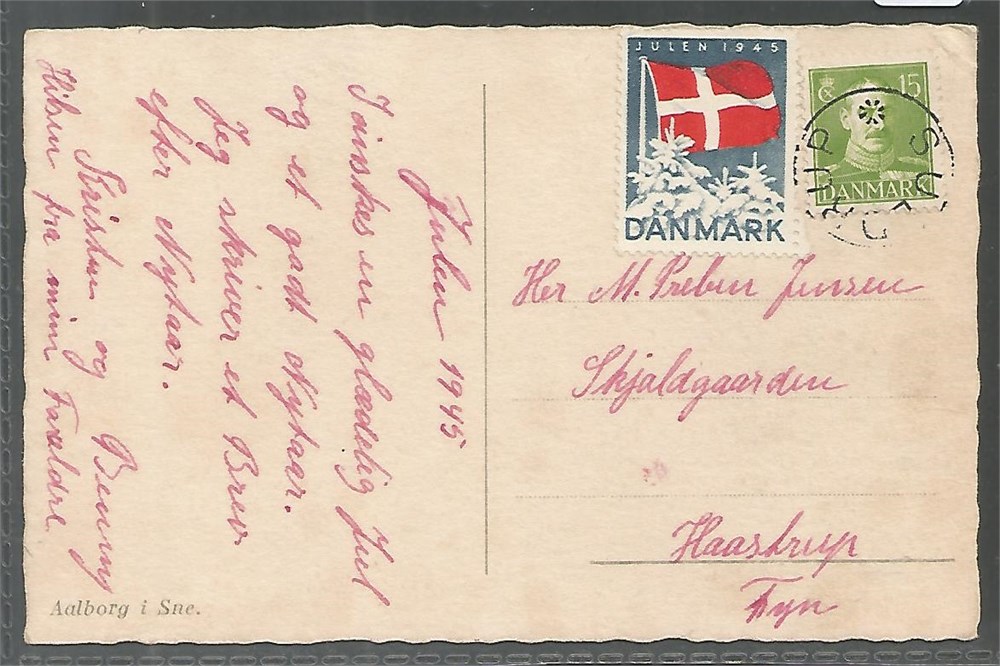 Julen 1945
Iønskes en glædelig Jul
og et godt Nytaar.
Jeg skriver et Brev
efter Nytaar.
Kristen og Benny
Hilsen fra mine Forældre.
Aalborg i Sne.
JULEN 1945
DANMARK
15
DANMARK
Her M. Preben Jensen
Skjaldgaarden
Haastrup
Fyn